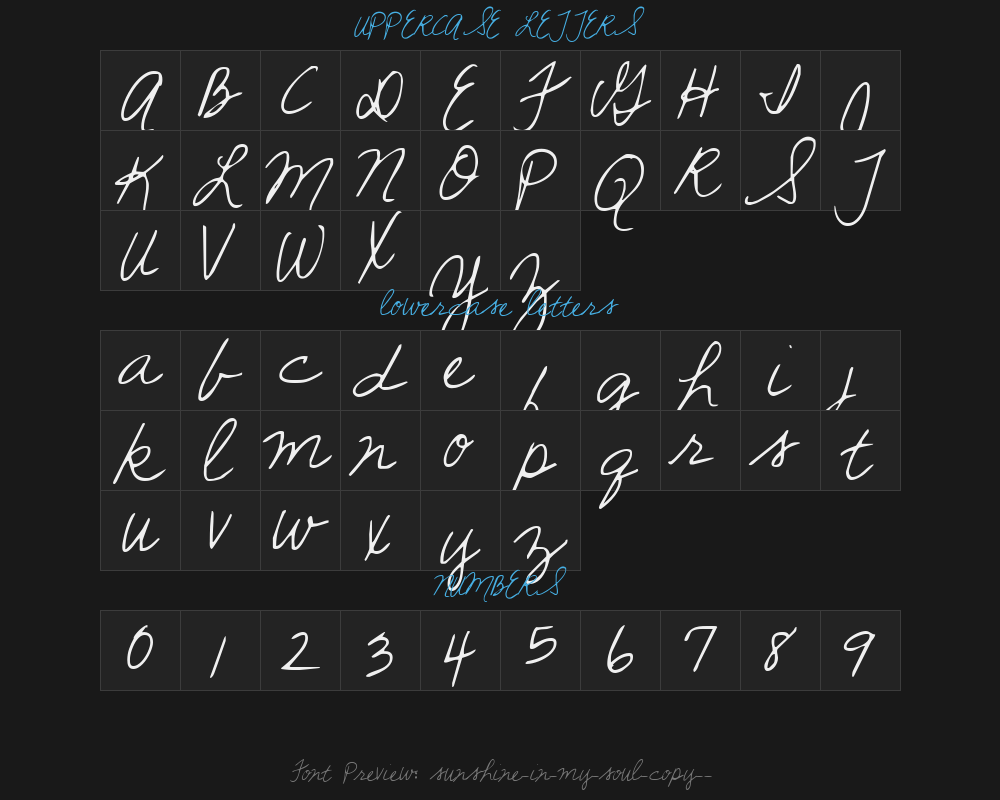 UPPERCASE LETTERS
A B C D E F G H I J
K L M N O P Q R S T
U V W X Y Z
lowercase letters
a b c d e f g h i j
k l m n o p q r s t
u v w x y z
NUMBERS
0 1 2 3 4 5 6 7 8 9
Font Preview: sunshine-in-my-soul-copy--